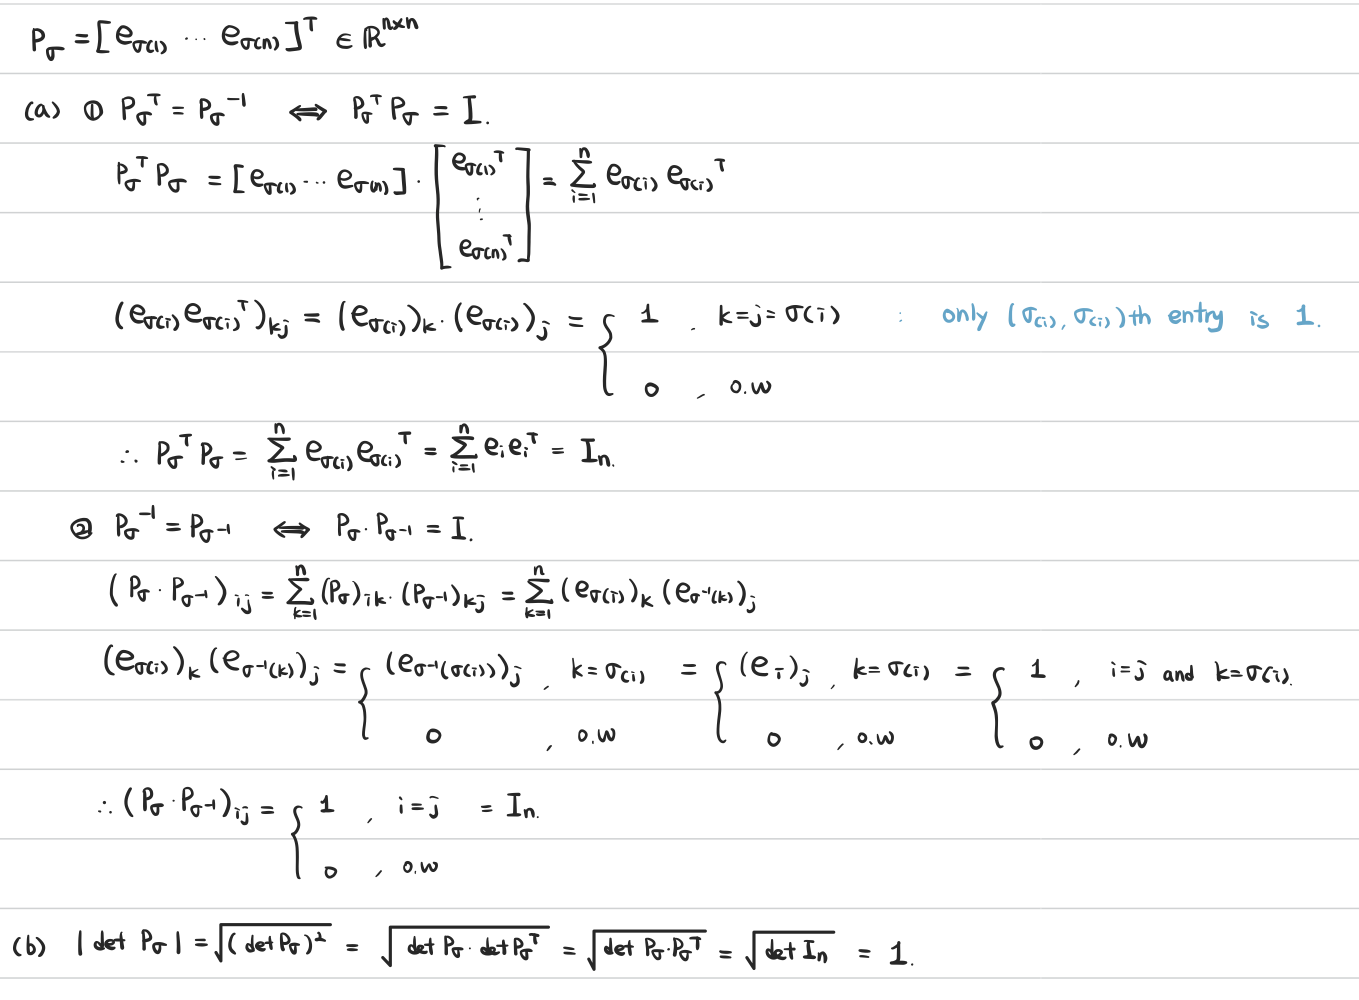 P_σ = [e_σ(1) ⋯ e_σ(n)]^T ∈ ℝ^{n×n}
(a) ① P_σ^T = P_σ^{-1} ⟺ P_σ^T P_σ = I.
P_σ^T P_σ = [e_σ(1) ⋯ e_σ(n)] · [e_σ(1)^T ⋮ e_σ(n)^T] = ∑_{i=1}^{n} e_σ(i) e_σ(i)^T
(e_σ(i) e_σ(i)^T)_{kj} = (e_σ(i))_k · (e_σ(i))_j = { 1 , k=j=σ(i) : only (σ(i), σ(i))th entry is 1.
0 , o.w
∴ P_σ^T P_σ = ∑_{i=1}^{n} e_σ(i) e_σ(i)^T = ∑_{i=1}^{n} e_i e_i^T = I_n.
② P_σ^{-1} = P_{σ^{-1}} ⟺ P_σ · P_{σ^{-1}} = I.
(P_σ · P_{σ^{-1}})_{ij} = ∑_{k=1}^{n} (P_σ)_{ik} · (P_{σ^{-1}})_{kj} = ∑_{k=1}^{n} (e_σ(i))_k (e_{σ^{-1}(k)})_j
(e_σ(i))_k (e_{σ^{-1}(k)})_j = { (e_{σ^{-1}(σ(i))})_j , k=σ(i) = { (e_i)_j , k=σ(i) = { 1 , i=j and k=σ(i).
0 , o.w 0 , o.w 0 , o.w
∴ (P_σ · P_{σ^{-1}})_{ij} = { 1 , i=j = I_n.
0 , o.w
(b) |det P_σ| = √((det P_σ)^2) = √(det P_σ · det P_σ^T) = √(det P_σ · P_σ^T) = √(det I_n) = 1.